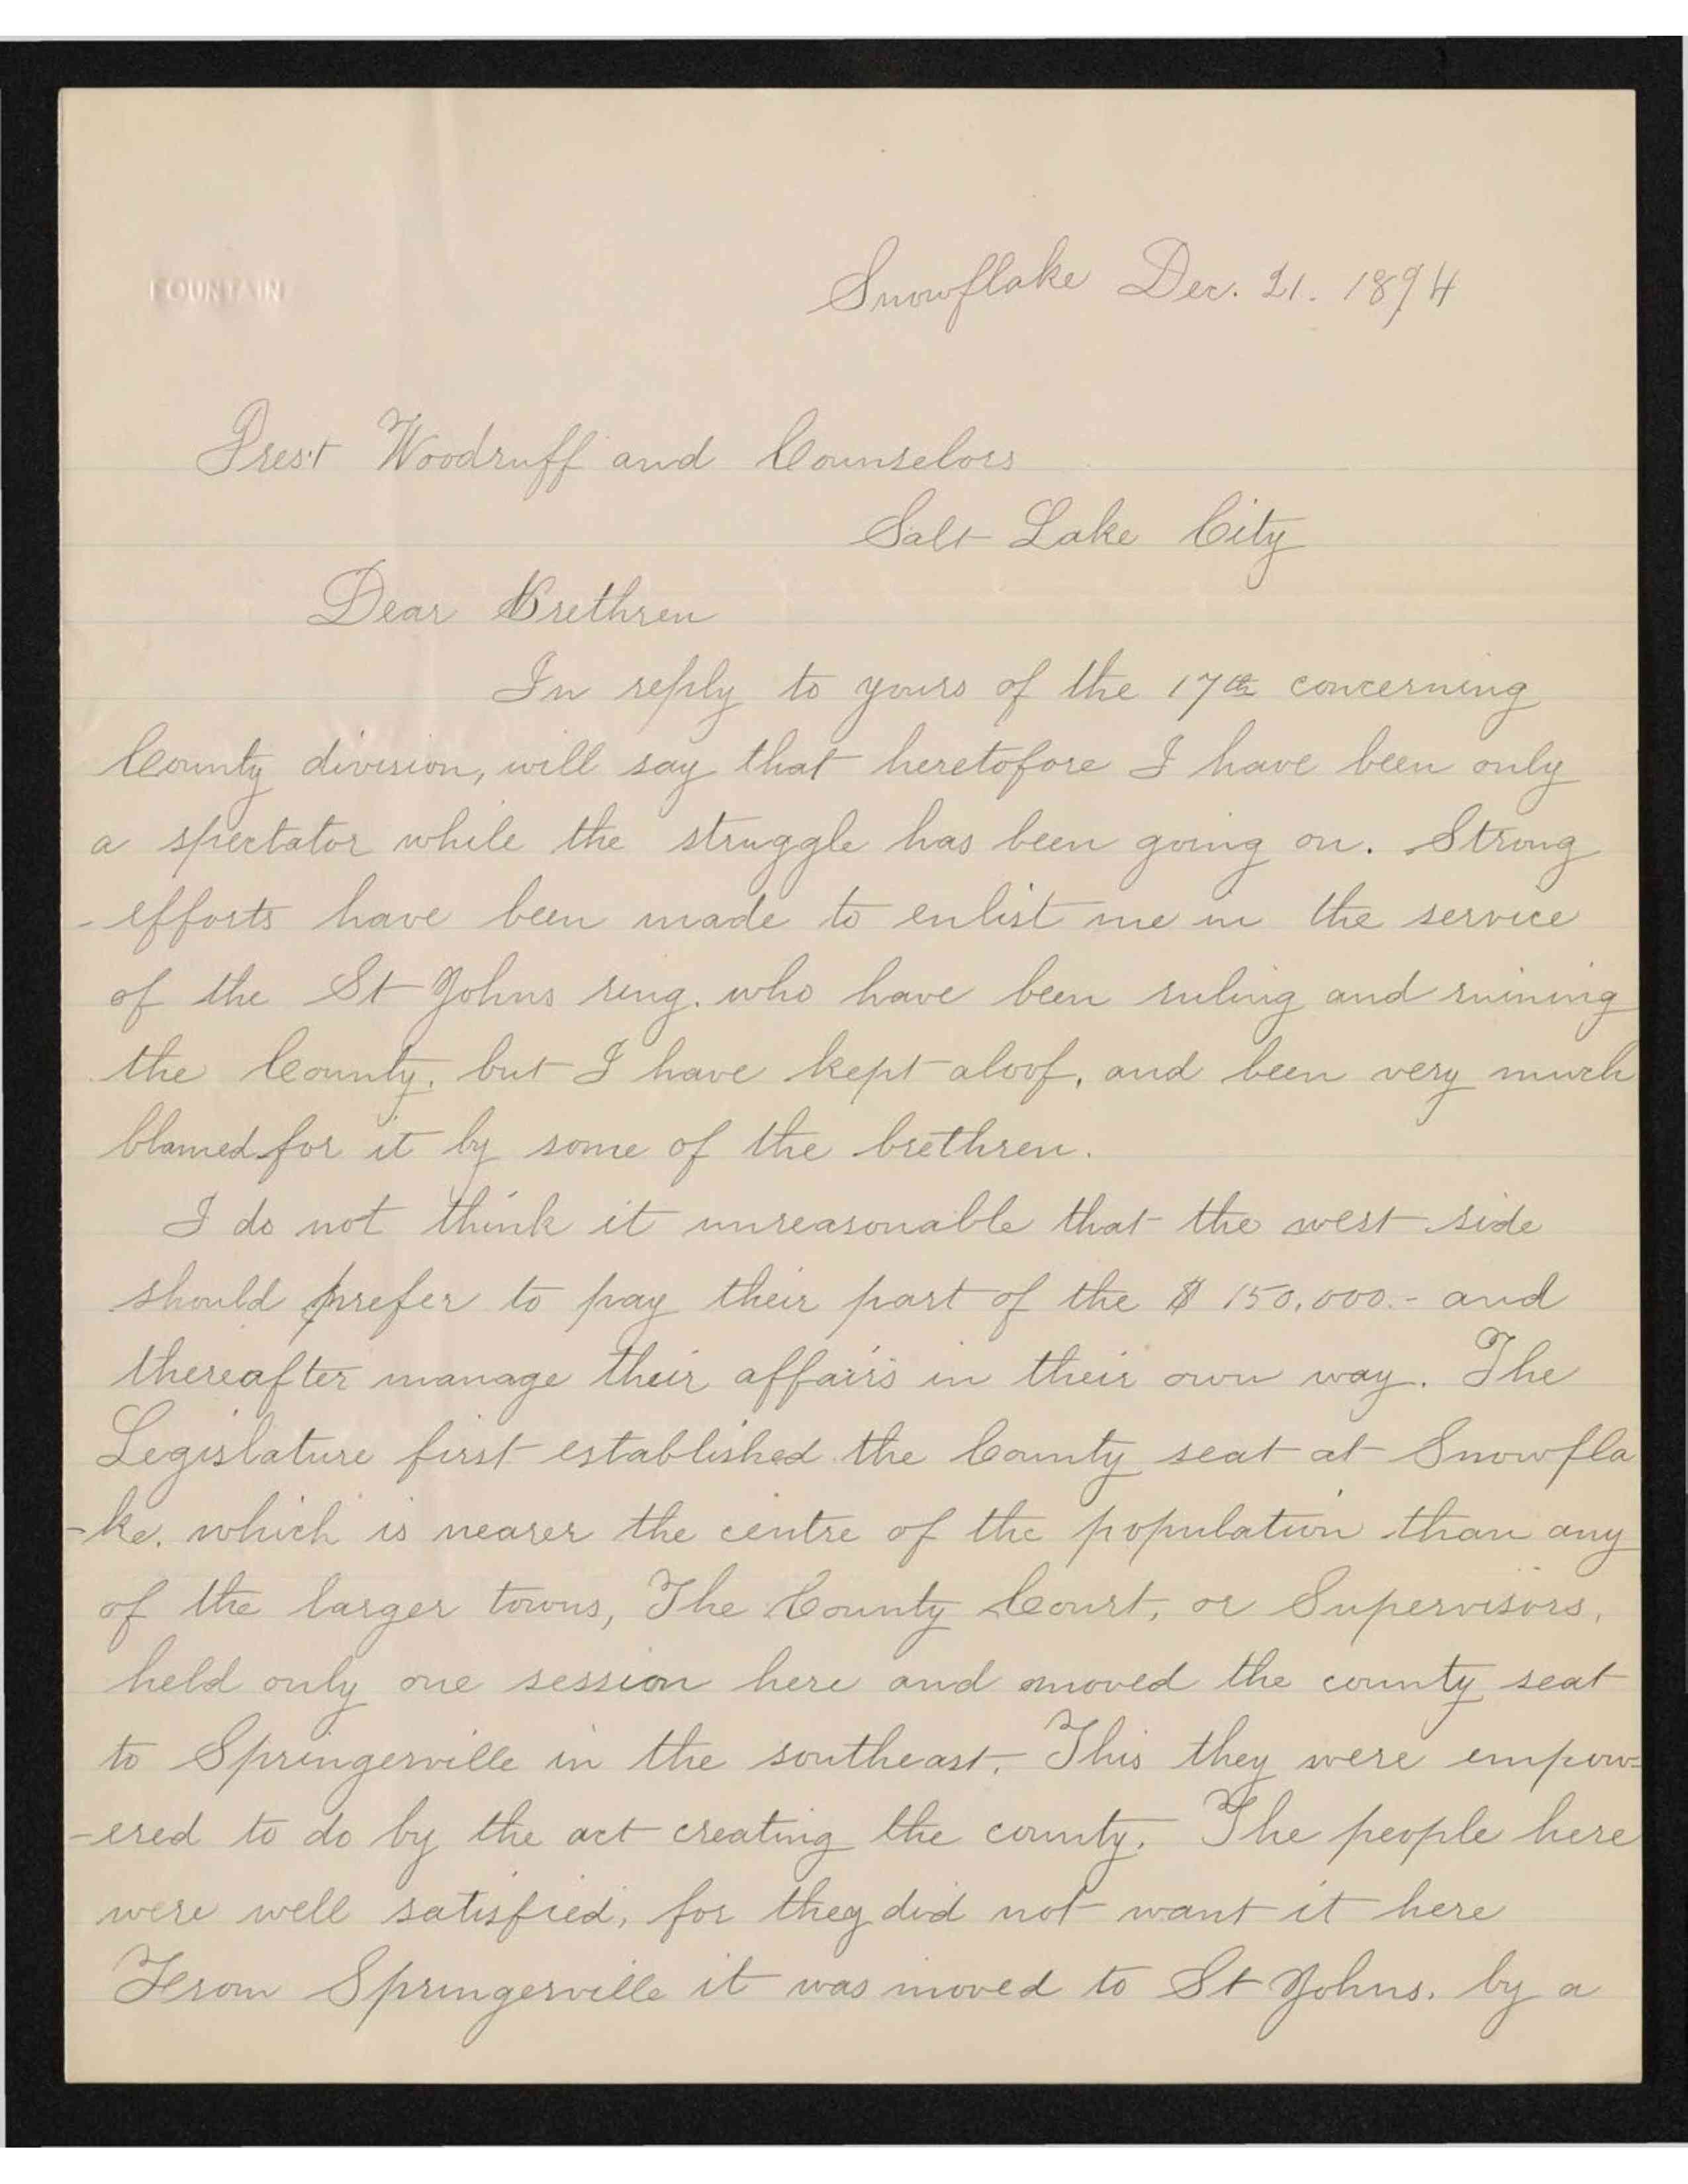 FOUNTAIN
Snowflake Dec. 21. 1894
Pres't Woodruff and Counselors
Salt Lake City
Dear Brethren
In reply to yours of the 17th concerning
County division, will say that heretofore I have been only
a spectator while the struggle has been going on. Strong
- efforts have been made to enlist me in the service
of the St Johns ring. who have been ruling and ruining
the County, but I have kept aloof, and been very much
blamed for it by some of the brethren.
I do not think it unreasonable that the west side
should prefer to pay their part of the $ 150,000.- and
thereafter manage their affairs in their own way. The
Legislature first established the County seat at Snowfla
-ke. which is nearer the centre of the population than any
of the larger towns, The County Court, or Supervisors,
held only one session here and moved the county seat
to Springerville in the southeast. This they were empow-
-ered to do by the act creating the county. The people here
were well satisfied, for they did not want it here
From Springerville it was moved to St Johns. by a